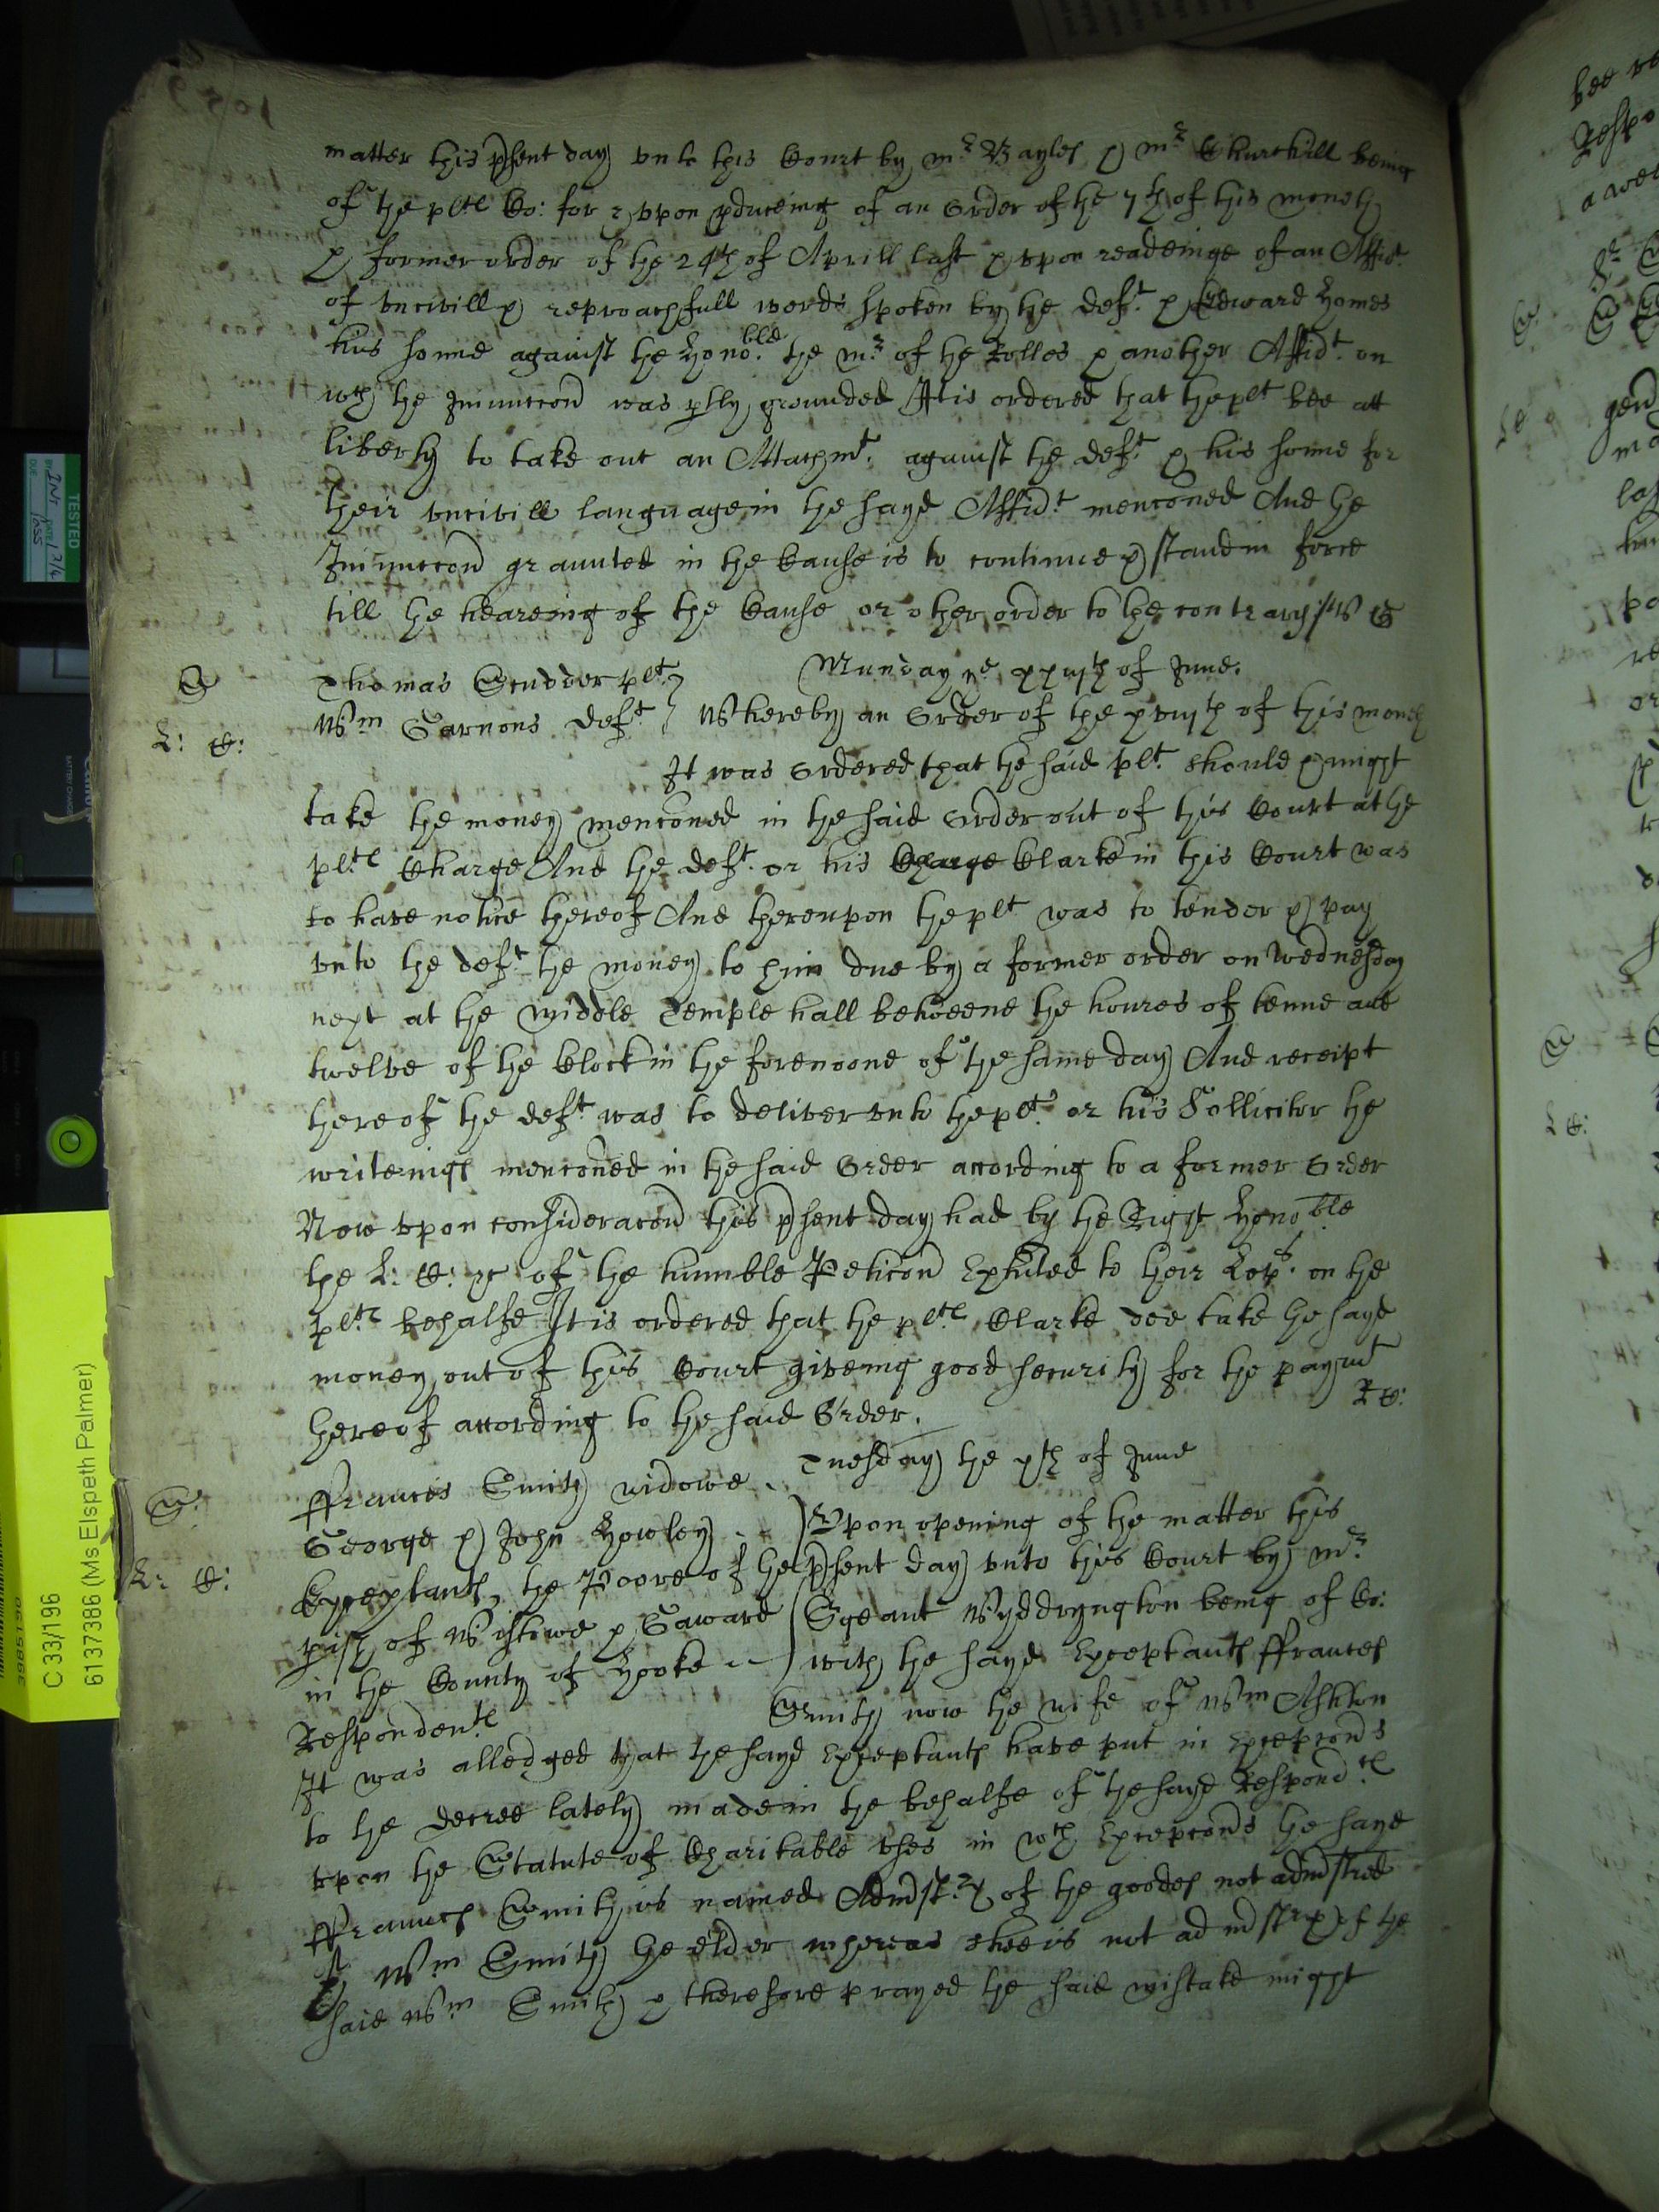 matter this psent day vnto this Court by mr Bayles & mr Churchill being
of the pltes Co: for & vpon pduceing of an Order of the 7th of this moneth
& former order of the 24th of Aprill last & vpon readeinge of an Affidt
of vncivill & reproachfull words spoken by the deft & Edward Homes
his sonne against the Honoble the mr of the Rolles & another Affidt. on
wch the Iniunccon was ptly grounded It is ordered that the plt bee att
liberty to take out an Attachmt. against the deft & his sonne for
their vncivill language in the sayd Affidt menconed And the
Iniunccon graunted in the Cause is to continue & stand in force
till the heareing of the Cause or other order to the contrary
S Thomas Scudder plt Munday ye xxiijth of June.
L: C: Wm Garnons deft Whereby an Order of the xviijth of this moneth
It was Ordered that the said plt. should & might
take the money menconed in the said Order out of this Court at the
pltes Charge And the deft. or his Charge Clarke in this Court was
to have notice thereof And thereupon the plt was to tender & pay
vnto the deft the money to him due by a former order on Wednesday
next at the Middle Temple hall betweene the houres of tenne and
twelve of the Clock in the forenoone of the same day And receipt
thereof the deft was to deliver vnto the plt. or his Sollicitor the
writeings menconed in the said Order according to a former Order
Now vpon consideracon this psent day had by the Right Honoble
the L: C: &c of the humble Peticon exhited to their Lops. on the
pltes behalfe It is ordered that the pltes Clarke doe take the sayd
money out of this Court giveing good security for the paymt
thereof according to the said Order. R C:
Tuesday the xth of June
S: ffrances Smith widowe
George & John Howley Vpon opening of the matter this
L: C: Exceptants, the Poore of the psent day vnto this Court by mr
pish of Wistowe & Caward Sgeant Wyddryngton being of Co:
in the County of Yorke with the sayd Exceptants ffrances
Respondentes Smith now the wife of Wm Ashton
It was alledged that the sayd Exceptants have put in Excepcons
to the Decree lately made in the behalfe of the sayd Respondtes
vpon the Statute of Charitable vses in wch Excepcons the sayd
ffraunces Smith is named Admstrx of the goodes not admstred
by Wm Smith the elder whereas shee is not admstrx of the
said Wm Smith & therefore prayed the said mistake might
TESTED
C 33/196
6137386 (Ms Elspeth Palmer)